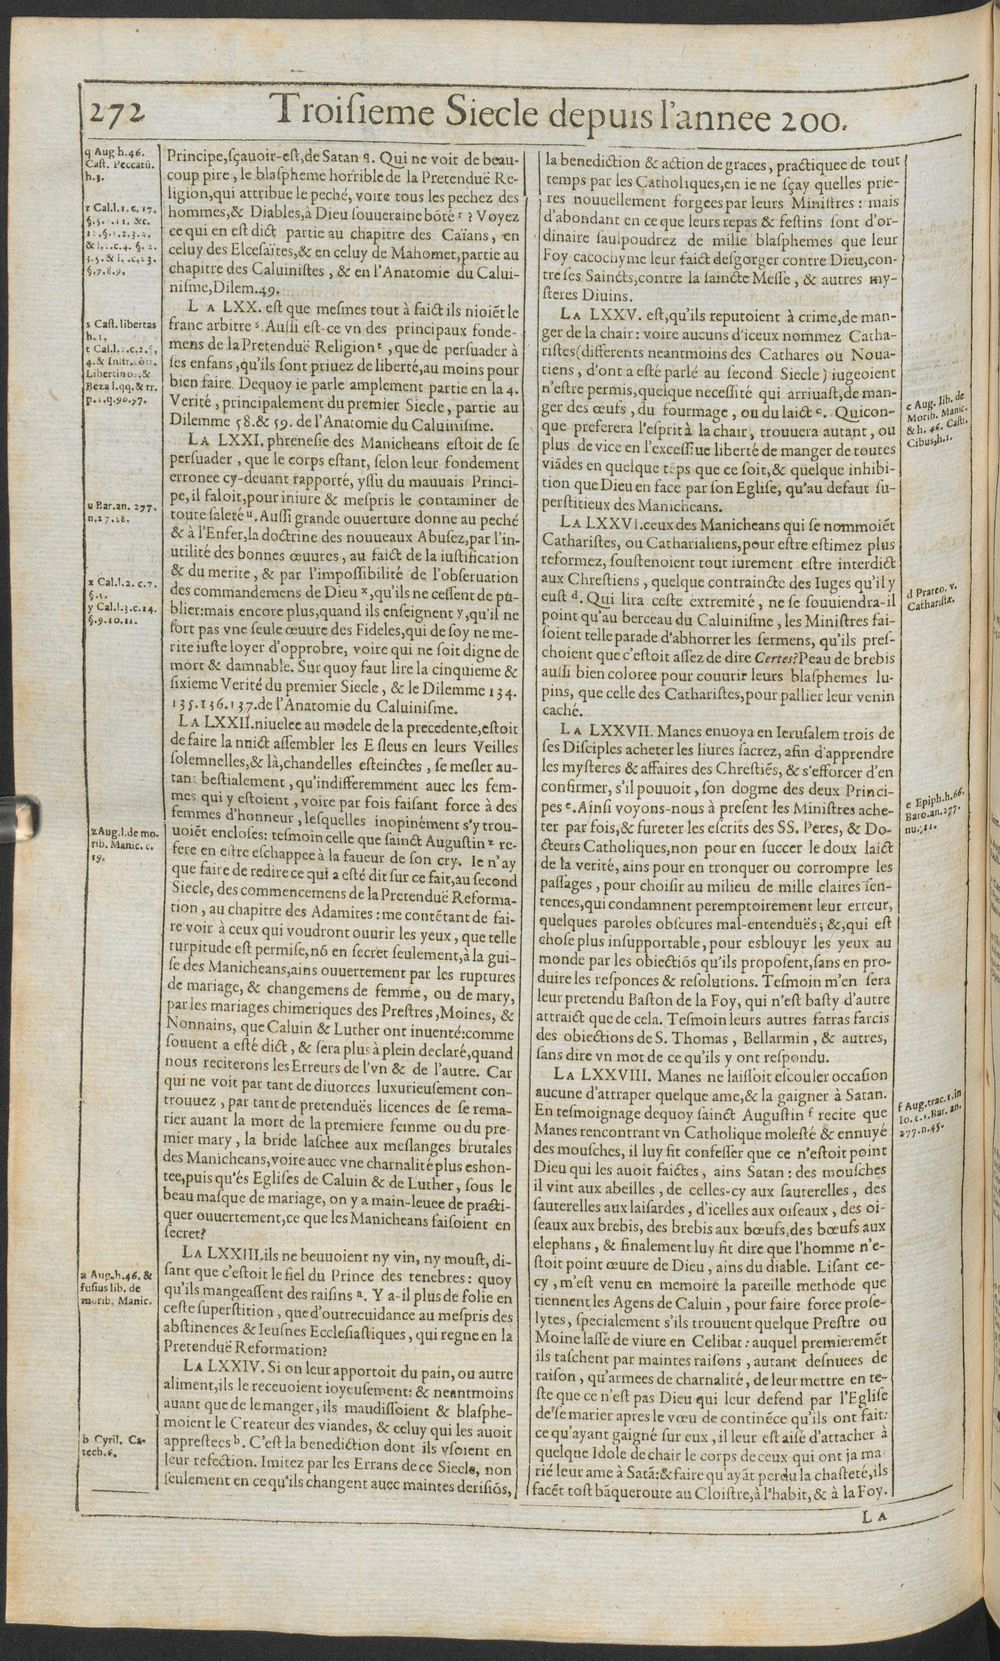 272
Troiſieme Siecle depuis l'annee 200.
q Aug h.46.
Caſt. Peccatū.
h.3.
r Cal.l.1.c.17.
§.7.8.9.
s Caſt. libertas
h.1.
Libertino..&
Beza l.qq.& rr.
u Bar.an. 277.
x Cal.l.2. c.7.
y Cal.l.3.c.14.
§.9.10.11.
z Aug.l.de mo-
rib. Manic. c.
19.
a Aug.h.46. &
fuſius lib. de
morib. Manic.
b Cyril. Ca-
tech.6.
Principe,ſçauoir-eſt,de Satan q. Qui ne voit de beau-
coup pire, le blaſpheme horrible de la Pretenduë Re-
ligion,qui attribue le peché, voire tous les pechez des
hommes,& Diables,à Dieu ſouueraine bōté r ? Voyez
ce qui en eſt dict partie au chapitre des Caïans, en
celuy des Elceſaïtes,& en celuy de Mahomet,partie au
chapitre des Caluiniſtes, & en l'Anatomie du Calui-
niſme,Dilem.49.
LA LXX. eſt que meſmes tout à faict ils nioiēt le
franc arbitre s. Auſſi eſt-ce vn des principaux fonde-
mens de la Pretenduë Religion t, que de perſuader à
ſes enfans,qu'ils ſont priuez de liberté,au moins pour
bien faire. Dequoy ie parle amplement partie en la 4.
Verité, principalement du premier Siecle, partie au
Dilemme 58.& 59. de l'Anatomie du Caluiniſme.
LA LXXI. phreneſie des Manicheans eſtoit de ſe
perſuader, que le corps eſtant, ſelon leur fondement
erronee cy-deuant rapporté, yſſu du mauuais Princi-
pe,il faloit,pour iniure & meſpris le contaminer de
toute ſaleté u. Auſſi grande ouuerture donne au peché
& à l'Enfer,la doctrine des nouueaux Abuſez,par l'in-
utilité des bonnes œuures, au faict de la iuſtification
& du merite, & par l'impoſſibilité de l'obſeruation
des commandemens de Dieu x,qu'ils ne ceſſent de pu-
blier:mais encore plus,quand ils enſeignent y,qu'il ne
ſort pas vne ſeule œuure des Fideles,qui de ſoy ne me-
rite iuſte loyer d'opprobre, voire qui ne ſoit digne de
mort & damnable. Sur quoy faut lire la cinquieme &
ſixieme Verité du premier Siecle, & le Dilemme 134.
135.136.137.de l'Anatomie du Caluiniſme.
LA LXXII.niuelee au modele de la precedente,eſtoit
de faire la nuict aſſembler les Eſleus en leurs Veilles
ſolemnelles,& là,chandelles eſteinctes, ſe meſler au-
tant beſtialement, qu'indifferemment auec les fem-
mes qui y eſtoient, voire par fois faiſant force à des
femmes d'honneur, leſquelles inopinément s'y trou-
uoiēt encloſes: teſmoin celle que ſainct Auguſtin z re-
fere en eſtre eſchappee à la faueur de ſon cry. Ie n'ay
que faire de redire ce qui a eſté dit ſur ce fait,au ſecond
Siecle, des commencemens de la Pretenduë Reforma-
tion, au chapitre des Adamites : me contētant de fai-
re voir à ceux qui voudront ouurir les yeux, que telle
turpitude eſt permiſe,nō en ſecret ſeulement,à la gui-
ſe des Manicheans,ains ouuertement par les ruptures
de mariage, & changemens de femme, ou de mary,
par les mariages chimeriques des Preſtres,Moines, &
Nonnains, que Caluin & Luther ont inuenté:comme
ſouuent a eſté dict, & ſera plus à plein declaré,quand
nous reciterons les Erreurs de l'vn & de l'autre. Car
qui ne voit par tant de diuorces luxurieuſement con-
trouuez, par tant de pretenduës licences de ſe rema-
rier auant la mort de la premiere femme ou du pre-
mier mary, la bride laſchee aux meſlanges brutales
des Manicheans,voire auec vne charnalité plus eshon-
tee,puis qu'és Egliſes de Caluin & de Luther, ſous le
beau maſque de mariage, on y a main-leuee de practi-
quer ouuertement,ce que les Manicheans faiſoient en
ſecret?
LA LXXIII.ils ne beuuoient ny vin, ny mouſt, di-
ſant que c'eſtoit le fiel du Prince des tenebres : quoy
qu'ils mangeaſſent des raiſins a. Y a-il plus de folie en
ceſte ſuperſtition, que d'outrecuidance au meſpris des
abſtinences & Ieuſnes Eccleſiaſtiques, qui regne en la
Pretenduë Reformation?
LA LXXIV. Si on leur apportoit du pain, ou autre
aliment,ils le receuoient ioyeuſement: & neantmoins
auant que de le manger, ils maudiſſoient & blaſphe-
moient le Createur des viandes, & celuy qui les auoit
appreſtees b. C'eſt la benediction dont ils vſoient en
leur refection. Imitez par les Errans de ce Siecle, non
ſeulement en ce qu'ils changent auec maintes deriſiōs,
la benediction & action de graces, practiquee de tout
temps par les Catholiques,en ie ne ſçay quelles prie-
res nouuellement forgees par leurs Miniſtres : mais
d'abondant en ce que leurs repas & feſtins ſont d'or-
dinaire ſaulpoudrez de mille blaſphemes que leur
Foy cacochyme leur faict deſgorger contre Dieu,con-
tre ſes Saincts,contre la ſaincte Meſſe, & autres my-
ſteres Diuins.
LA LXXV. eſt,qu'ils reputoient à crime,de man-
ger de la chair : voire aucuns d'iceux nommez Catha-
riſtes(differents neantmoins des Cathares ou Noua-
tiens, d'ont a eſté parlé au ſecond Siecle) iugeoient
n'eſtre permis,quelque neceſſité qui arriuaſt,de man-
ger des œufs, du fourmage, ou du laict c. Quicon-
que preferera l'eſprit à la chair, trouuera autant, ou
plus de vice en l'exceſſiue liberté de manger de toutes
viādes en quelque tēps que ce ſoit,& quelque inhibi-
tion que Dieu en face par ſon Egliſe, qu'au defaut ſu-
perſtitieux des Manicheans.
LA LXXVI.ceux des Manicheans qui ſe nommoiēt
Cathariſtes, ou Catharialiens,pour eſtre eſtimez plus
reformez, ſouſtenoient tout iurement eſtre interdict
aux Chreſtiens, quelque contraincte des Iuges qu'il y
euſt d. Qui lira ceſte extremité, ne ſe ſouuiendra-il
point qu'au berceau du Caluiniſme, les Miniſtres fai-
ſoient telle parade d'abhorrer les ſermens, qu'ils preſ-
choient que c'eſtoit aſſez de dire Certes?Peau de brebis
auſſi bien coloree pour couurir leurs blaſphemes lu-
pins, que celle des Cathariſtes,pour pallier leur venin
caché.
LA LXXVII. Manes enuoya en Ieruſalem trois de
ſes Diſciples acheter les liures ſacrez, afin d'apprendre
les myſteres & affaires des Chreſtiēs, & s'efforcer d'en
confirmer, s'il pouuoit, ſon dogme des deux Princi-
pes e. Ainſi voyons-nous à preſent les Miniſtres ache-
ter par fois,& fureter les eſcrits des SS. Peres, & Do-
cteurs Catholiques,non pour en ſuccer le doux laict
de la verité, ains pour en tronquer ou corrompre les
paſſages, pour choiſir au milieu de mille claires ſen-
tences,qui condamnent peremptoirement leur erreur,
quelques paroles obſcures mal-entenduës; &,qui eſt
choſe plus inſupportable, pour esblouyr les yeux au
monde par les obiectiōs qu'ils propoſent,ſans en pro-
duire les reſponces & reſolutions. Teſmoin m'en ſera
leur pretendu Baſton de la Foy, qui n'eſt baſty d'autre
attraict que de cela. Teſmoin leurs autres fatras farcis
des obiections de S. Thomas, Bellarmin, & autres,
ſans dire vn mot de ce qu'ils y ont reſpondu.
LA LXXVIII. Manes ne laiſſoit eſcouler occaſion
aucune d'attraper quelque ame,& la gaigner à Satan.
En teſmoignage dequoy ſainct Auguſtin f recite que
Manes rencontrant vn Catholique moleſté & ennuyé
des mouſches, il luy fit confeſſer que ce n'eſtoit point
Dieu qui les auoit faictes, ains Satan : des mouſches
il vint aux abeilles, de celles-cy aux ſauterelles, des
ſauterelles aux laiſardes, d'icelles aux oiſeaux, des oi-
ſeaux aux brebis, des brebis aux bœufs,des bœufs aux
elephans, & finalement luy fit dire que l'homme n'e-
ſtoit point œuure de Dieu, ains du diable. Liſant ce-
cy, m'eſt venu en memoire la pareille methode que
tiennent les Agens de Caluin, pour faire force proſe-
lytes, ſpecialement s'ils trouuent quelque Preſtre ou
Moine laſſé de viure en Celibat : auquel premieremēt
ils taſchent par maintes raiſons, autant deſnuees de
raiſon, qu'armees de charnalité, de leur mettre en te-
ſte que ce n'eſt pas Dieu qui leur defend par l'Egliſe
de ſe marier apres le vœu de continēce qu'ils ont fait:
ce qu'ayant gaigné ſur eux, il leur eſt aiſé d'attacher à
quelque Idole de chair le corps de ceux qui ont ja ma-
rié leur ame à Satā:& faire qu'ayāt perdu la chaſteté,ils
facēt toſt bāqueroute au Cloiſtre,à l'habit,& à la Foy.
c Aug. lib. de
Morib. Manic.
& h. 46. Caſti.
Cibus,h.1.
d Prateo. v.
Cathariſtæ.
e Epiph.h.66.
Baro.an.277.
f Aug.trac.1.in
Io.c.1.Bar. an.
277.n.45.
LA